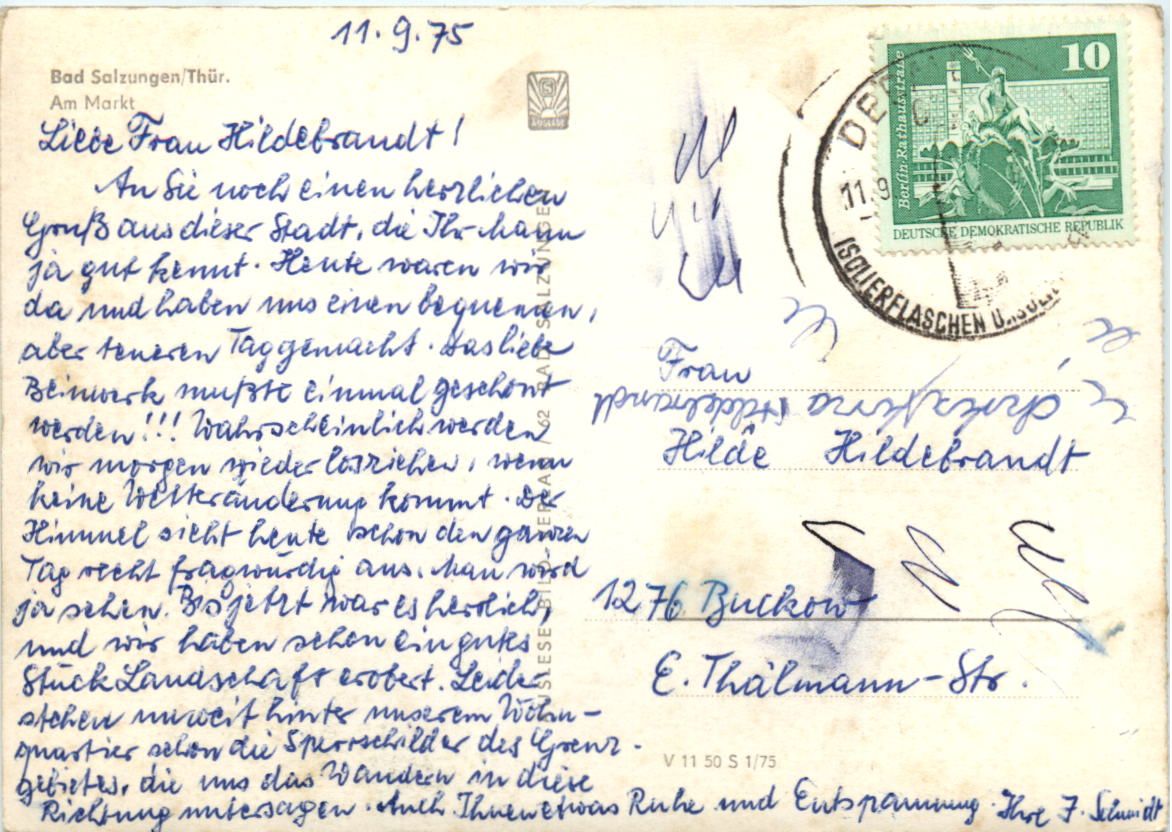 11.9.75
Bad Salzungen/Thür.
Am Markt
Liebe Frau Hildebrandt!
An Sie noch einen herzlichen
Gruß aus dieser Stadt, die Ihr Mann
ja gut kennt. Heute waren wir
da und haben uns einen bequemen,
aber teueren Tag gemacht. Das liebe
Beinwerk mußte einmal geschont
werden!!! Wahrscheinlich werden
wir morgen wieder losziehen, wenn
keine Wetteränderung kommt. Der
Himmel sieht heute schon den ganzen
Tag recht fragwürdig aus. Man wird
ja sehen. Bis jetzt war es herrlich,
und wir haben schon ein gutes
Stück Landschaft erobert. Leider
stehen unweit hinter unserem Wohn-
quartier schon die Sperrschilder des Grenz-
gebietes, die uns das Wandern in diese
Richtung untersagen. Auch Ihnen etwas Ruhe und Entspannung. Ihre J. Schmidt
10
Berlin-Rathausstraße
DEUTSCHE DEMOKRATISCHE REPUBLIK
11.9
ISOLIERFLASCHEN
Frau
Hildebrandt
Hilde Hildebrandt
1276 Buckow
E. Thälmann-Str.
V 11 50 S 1/75
62 BAD SALZUNGEN